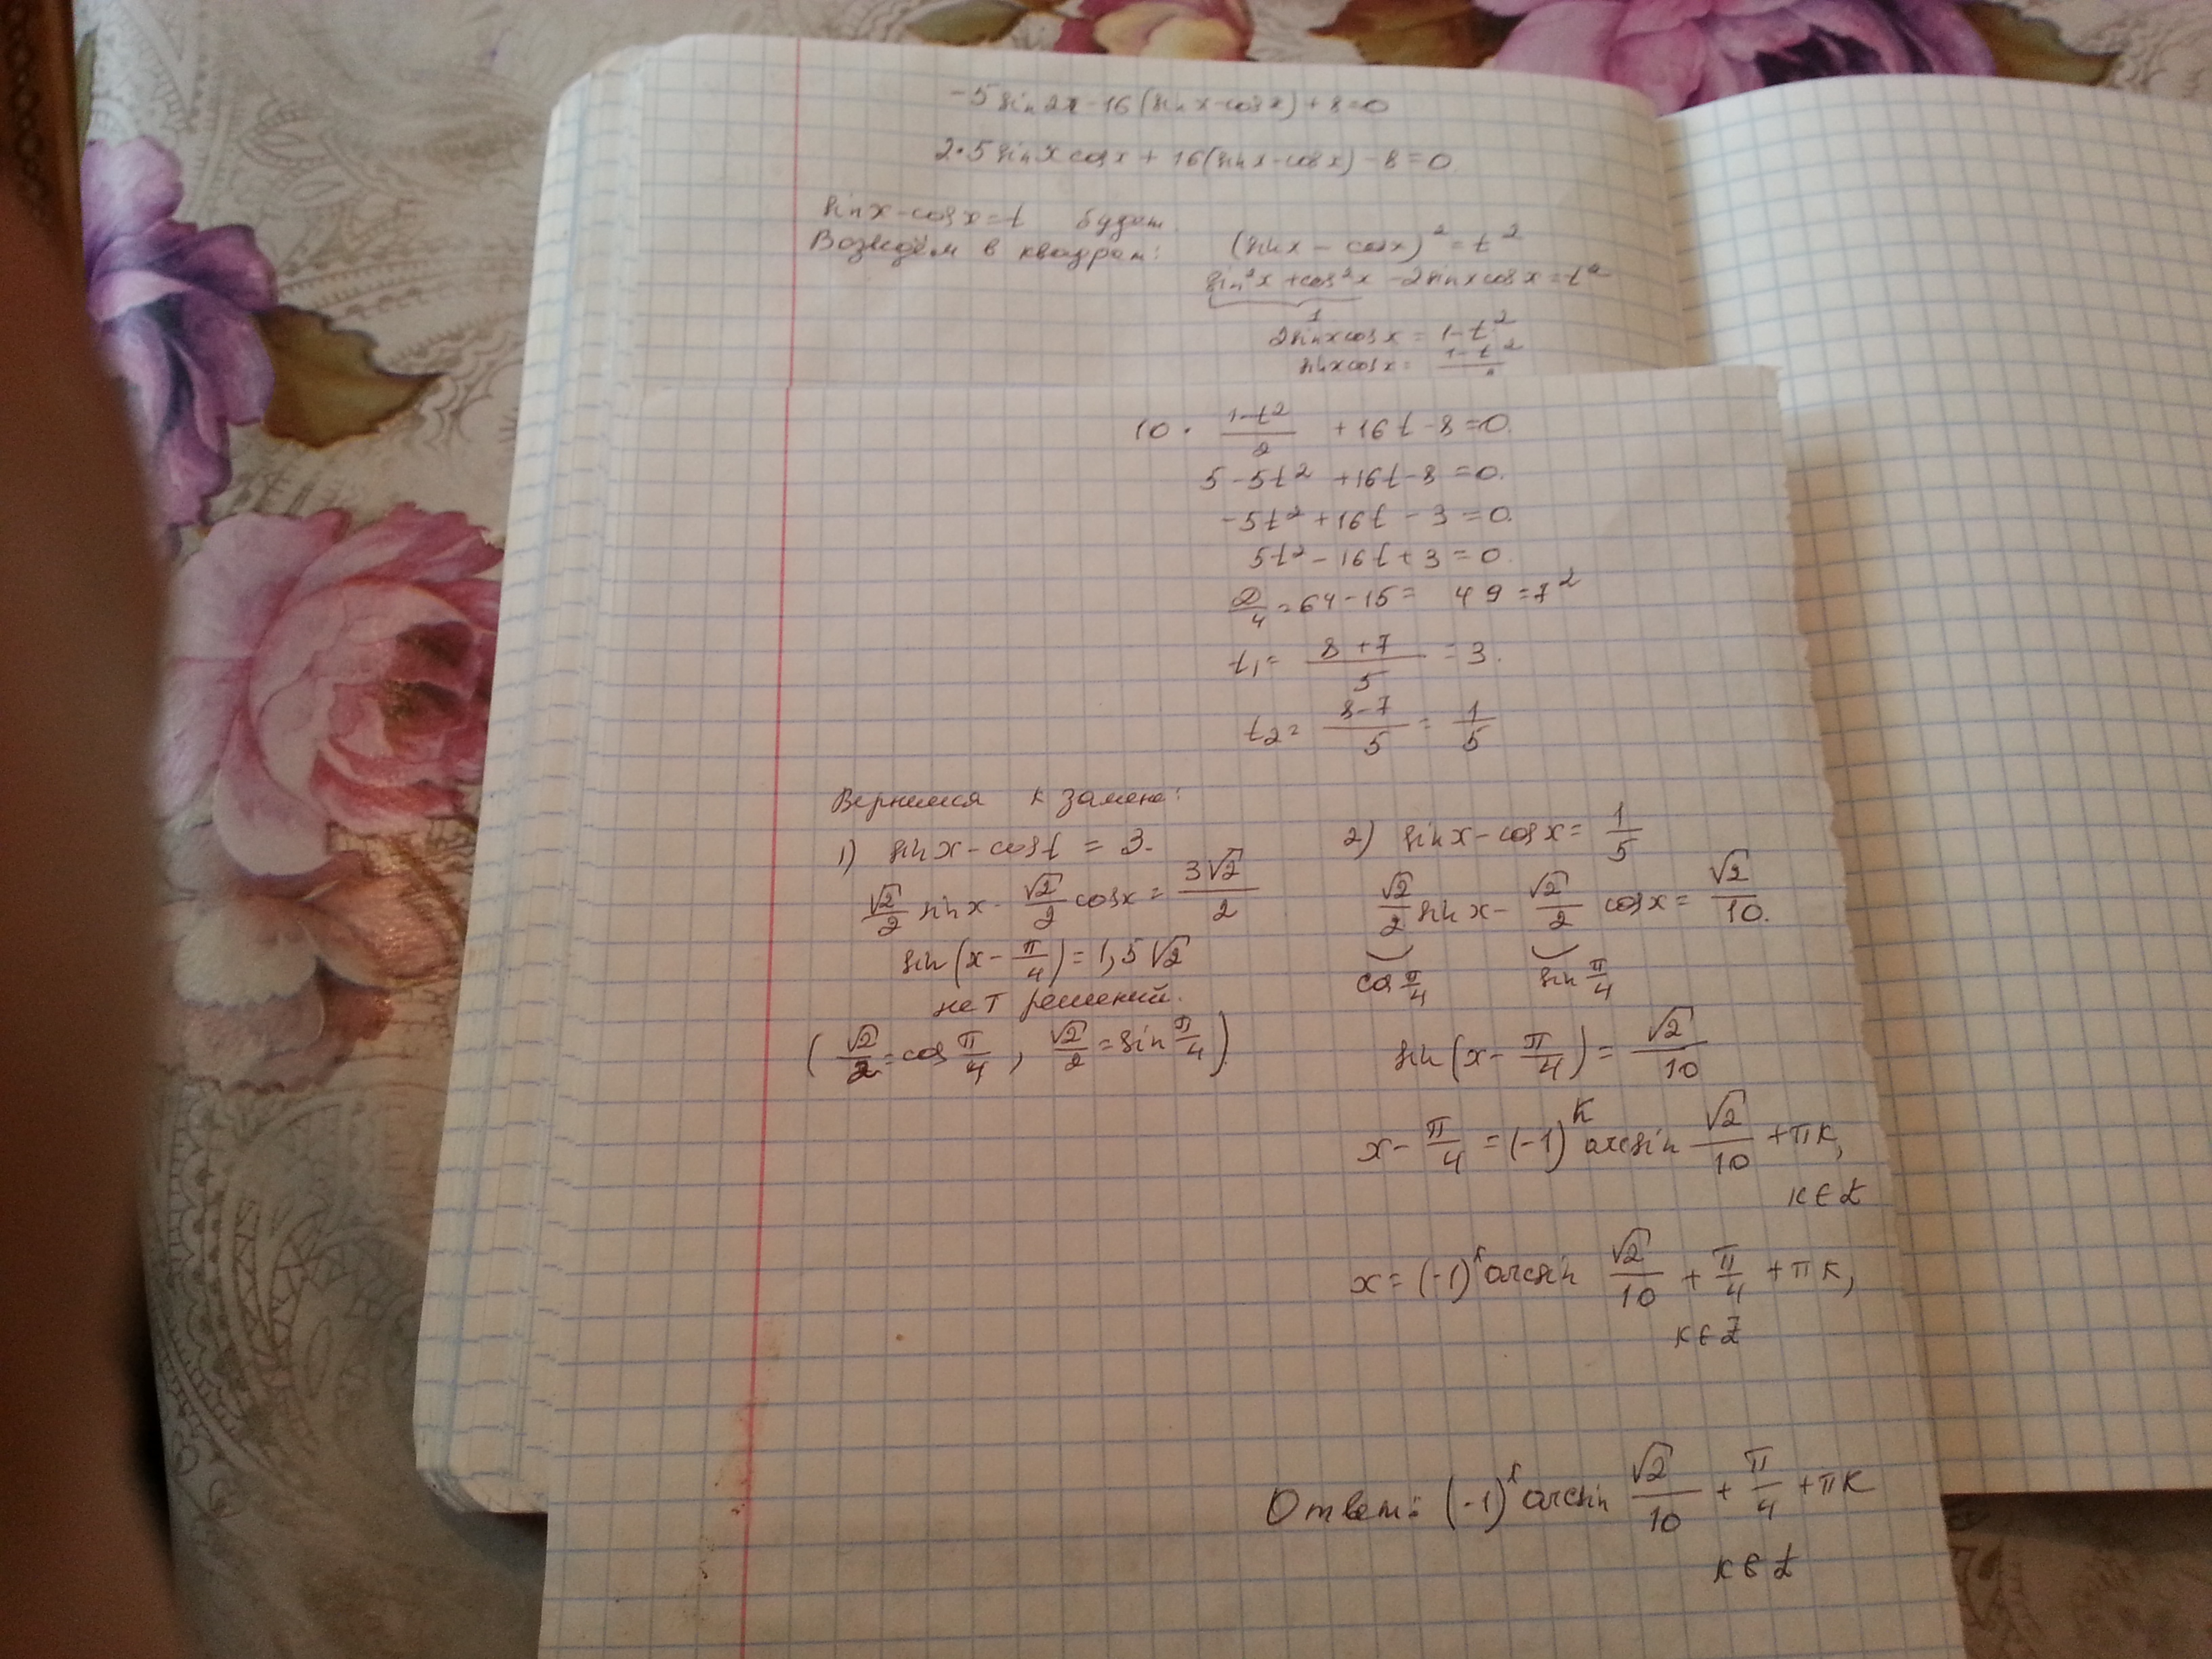 -5 sin 2x - 16 (sin x - cos x) + 8 = 0
2·5 sin x cos x + 16 (sin x - cos x) - 8 = 0
sin x - cos x = t будет
Возведём в квадрат: (sin x - cos x)² = t²
sin²x + cos²x - 2 sin x cos x = t²
1
2 sin x cos x = 1 - t²
sin x cos x = (1 - t²)/2
10 · (1 - t²)/2 + 16t - 8 = 0.
5 - 5t² + 16t - 8 = 0.
-5t² + 16t - 3 = 0.
5t² - 16t + 3 = 0.
D/4 = 64 - 15 = 49 = 7²
t₁ = (8 + 7)/5 = 3.
t₂ = (8 - 7)/5 = 1/5
Вернемся к замене:
1) sin x - cos t = 3.
√2/2 sin x - √2/2 cos x = 3√2/2
sin (x - π/4) = 1,5 √2
нет решений.
(√2/2 = cos π/4, √2/2 = sin π/4).
2) sin x - cos x = 1/5
√2/2 sin x - √2/2 cos x = √2/10.
cos π/4 sin π/4
sin (x - π/4) = √2/10
x - π/4 = (-1)^k arcsin √2/10 + πk,
k ∈ Z
x = (-1)^k arcsin √2/10 + π/4 + πk,
k ∈ Z
Ответ: (-1)^k arcsin √2/10 + π/4 + πk
k ∈ Z